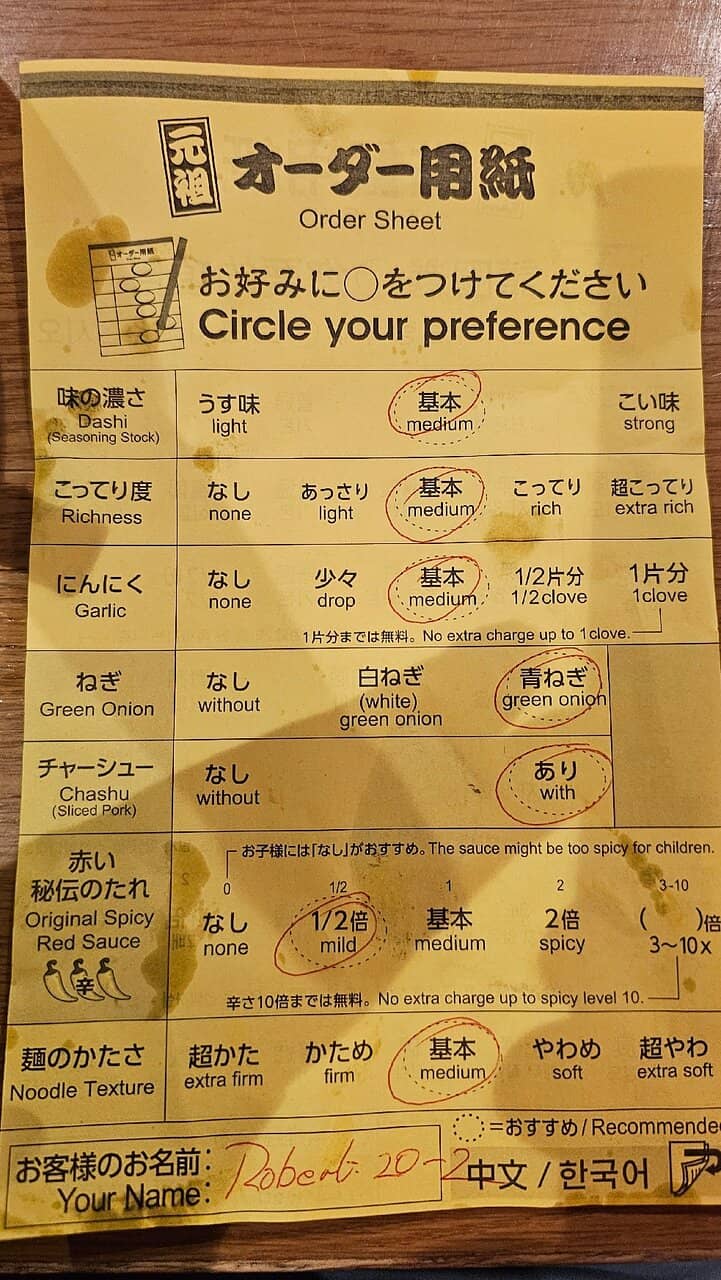 元祖 オーダー用紙
Order Sheet
お好みに○をつけてください
Circle your preference
味の濃さ うす味 基本 こい味
Dashi light medium strong
(Seasoning Stock)
こってり度 なし あっさり 基本 こってり 超こってり
Richness none light medium rich extra rich
にんにく なし 少々 基本 1/2片分 1片分
Garlic none drop medium 1/2clove 1clove
1片分までは無料。No extra charge up to 1clove.
ねぎ なし 白ねぎ 青ねぎ
Green Onion without (white) green onion green onion
チャーシュー なし あり
Chashu without with
(Sliced Pork)
お子様には「なし」がおすすめ。The sauce might be too spicy for children.
0 1/2 1 2 3-10
赤い秘伝のたれ なし 1/2倍 基本 2倍 ( )倍
Original Spicy Red Sauce none mild medium spicy 3〜10x
辛
辛さ10倍までは無料。No extra charge up to spicy level 10.
麺のかたさ 超かた かため 基本 やわめ 超やわ
Noodle Texture extra firm firm medium soft extra soft
=おすすめ/Recommende
お客様のお名前:
Your Name: Robert 20-2
中文 / 한국어